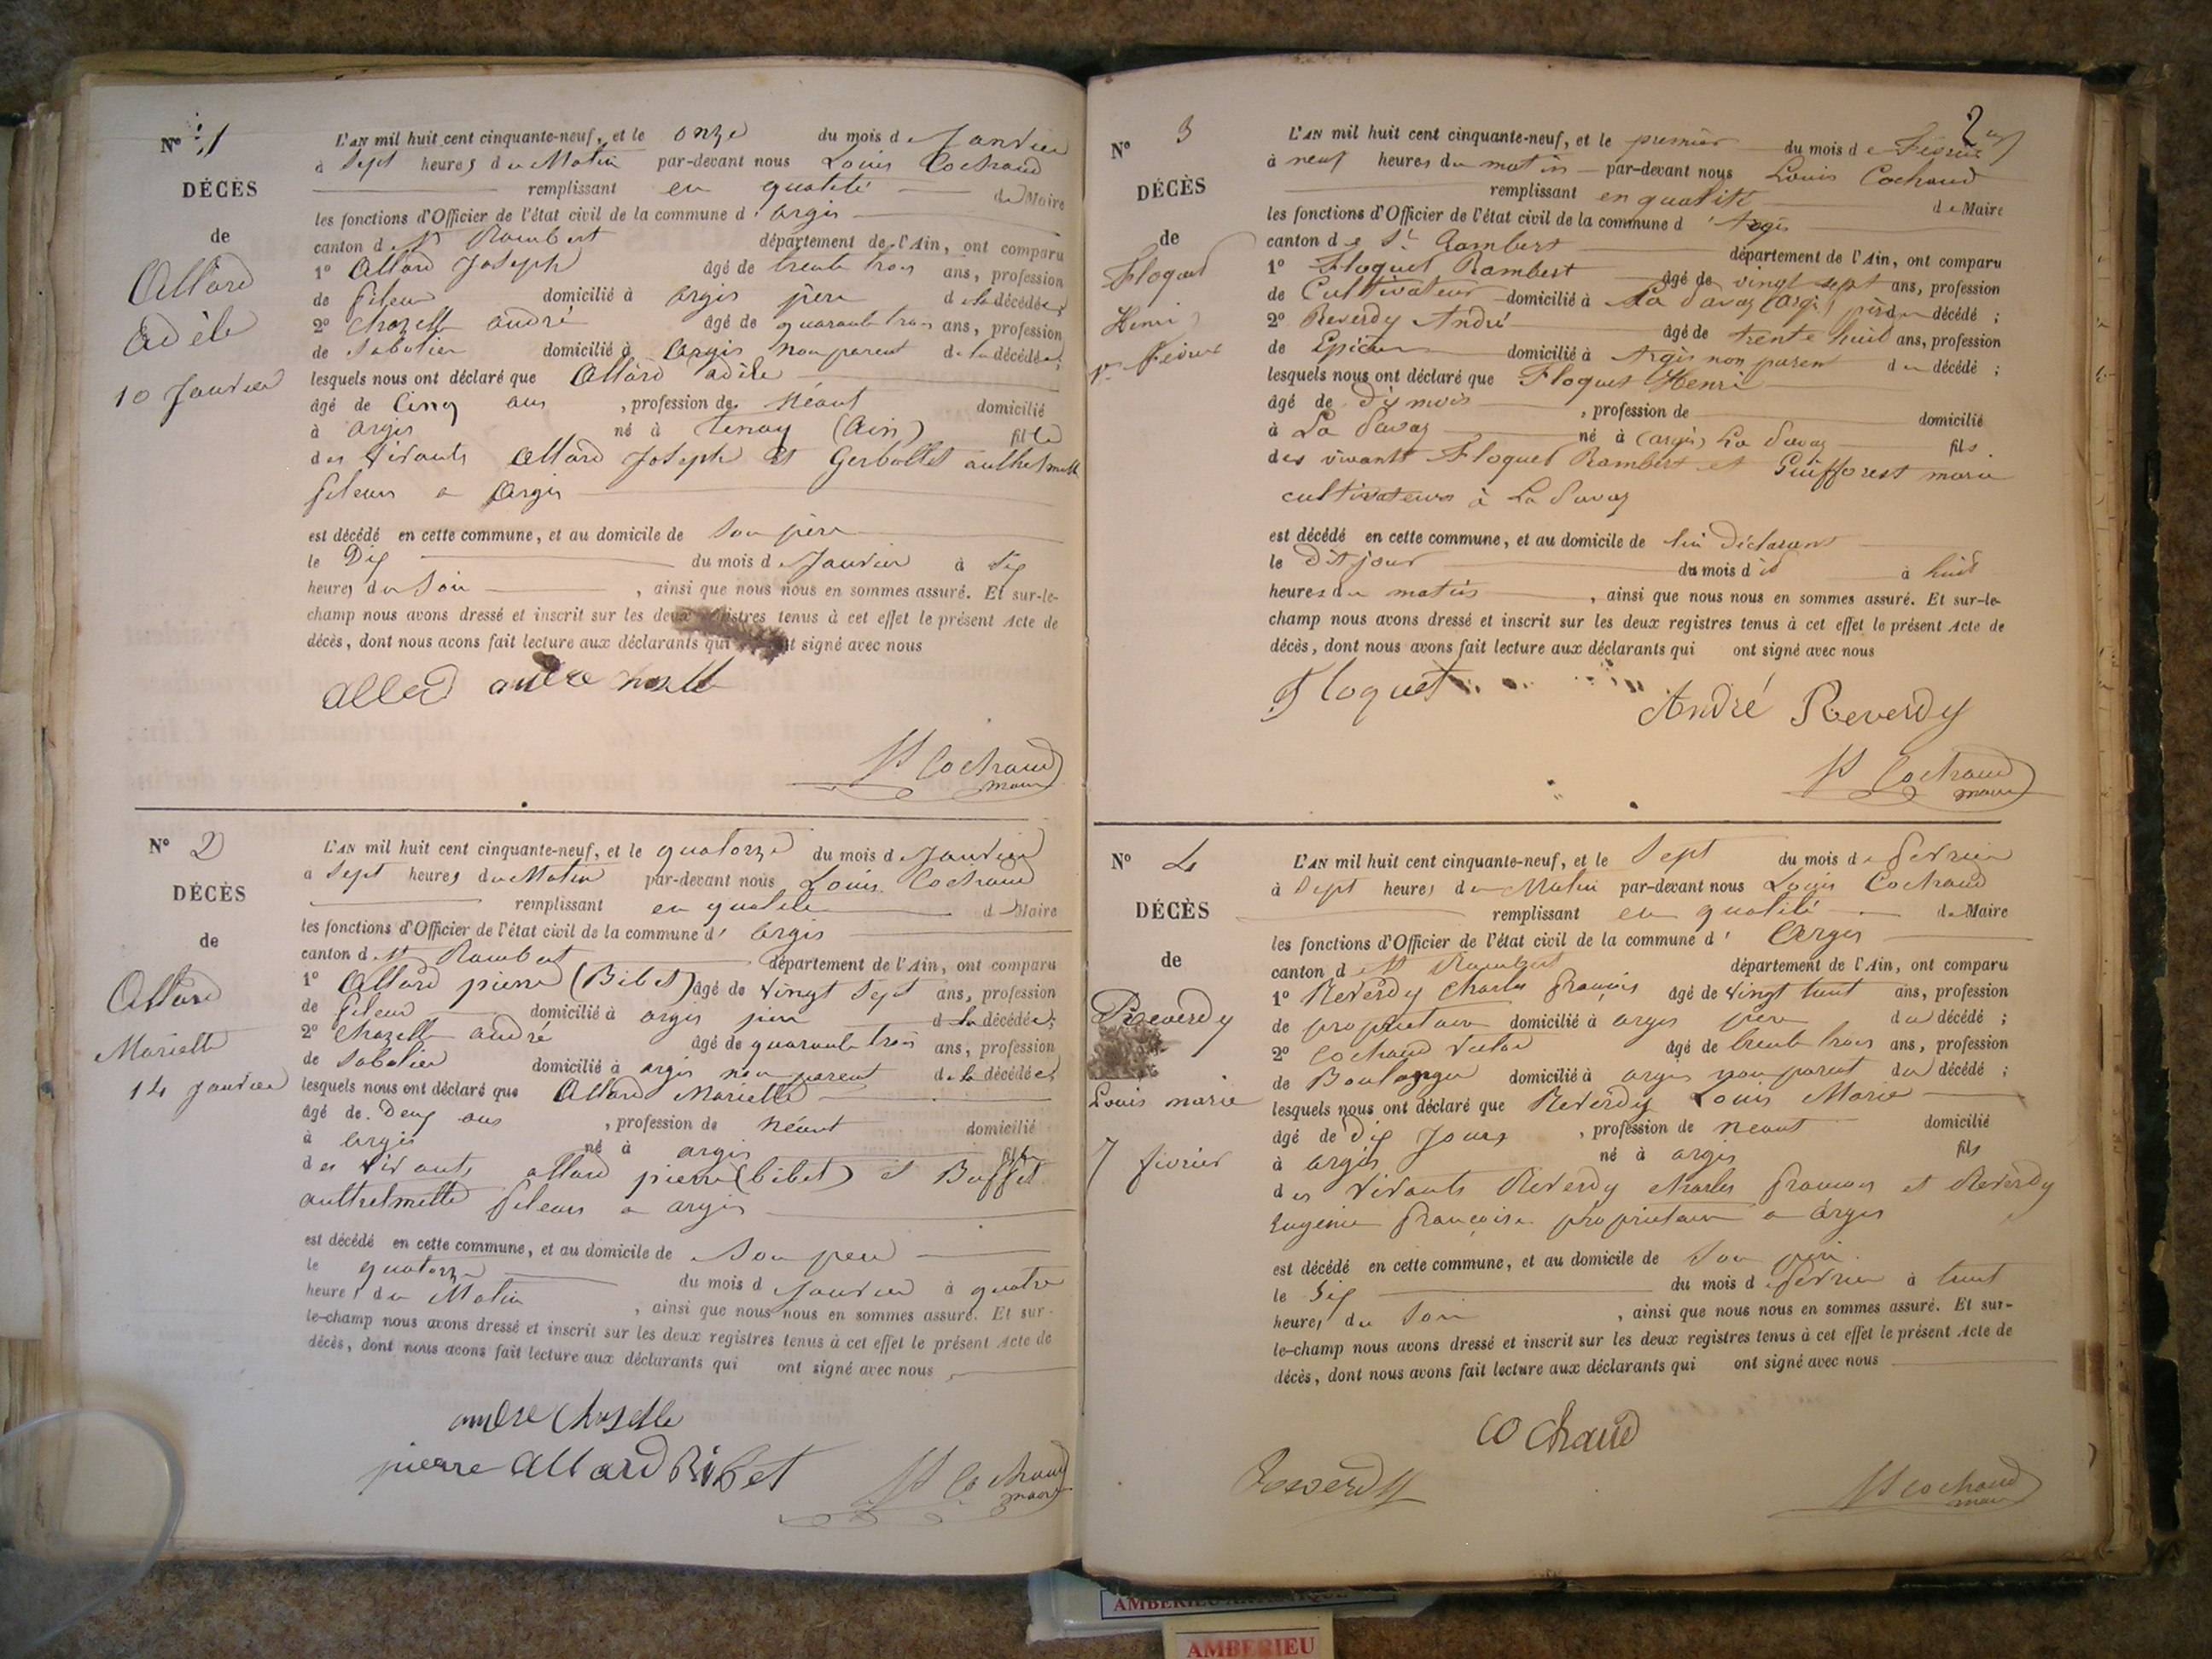 N° 1
DÉCÈS
de
Allard
Adèle
10 Janvier
L'AN mil huit cent cinquante-neuf, et le onze du mois de Janvier
à Sept heures du Matin par-devant nous Louis Cochaud
remplissant en qualité de Maire
les fonctions d'Officier de l'état civil de la commune d'argis
canton de St Rambert département de l'Ain, ont comparu
1° Allard Joseph âgé de trente trois ans, profession
de fileur domicilié à argis père de la décédée;
2° Chazelle andré âgé de quarante trois ans, profession
de Sabotier domicilié à Argis non parent de la décédée;
lesquels nous ont déclaré que Allard adèle
âgé de Cinq ans, profession de Néant domicilié
à argis né à tenay (Ain) fille
des vivants Allard Joseph et Gerbollet anthelmette
fileurs a Argis
est décédé en cette commune, et au domicile de Son père
le Dix du mois de Janvier à Six
heures du Soir, ainsi que nous nous en sommes assuré. Et sur-le-
champ nous avons dressé et inscrit sur les deux registres tenus à cet effet le présent Acte de
décès, dont nous avons fait lecture aux déclarants qui ont signé avec nous
allard andre
Cochaud
maire
N° 2
DÉCÈS
de
Allard
Mariette
14 Janvier
L'AN mil huit cent cinquante-neuf, et le quatorze du mois de Janvier
à Sept heures du Matin par-devant nous Louis Cochaud
remplissant en qualité de Maire
les fonctions d'Officier de l'état civil de la commune d'argis
canton de St Rambert département de l'Ain, ont comparu
1° Allard pierre (Bibet) âgé de vingt Sept ans, profession
de fileur domicilié à argis père de la décédée;
2° Chazelle andré âgé de quarante trois ans, profession
de Sabotier domicilié à argis non parent de la décédée;
lesquels nous ont déclaré que Allard Mariette
âgé de Deux ans, profession de Néant domicilié
à argis né à argis fille
des vivants allard pierre (bibet) et Buffet
anthelmette fileurs a argis
est décédé en cette commune, et au domicile de Son père
le quatorze du mois de Janvier à quatre
heures du Matin, ainsi que nous nous en sommes assuré. Et sur-
le-champ nous avons dressé et inscrit sur les deux registres tenus à cet effet le présent Acte de
décès, dont nous avons fait lecture aux déclarants qui ont signé avec nous
andre Chazelle
pierre Allard Bibet
Cochaud
maire
2
N° 3
DÉCÈS
de
Floquet
Henri
1er Février
L'AN mil huit cent cinquante-neuf, et le premier du mois de Février
à neuf heures du matin par-devant nous Louis Cochaud
remplissant en qualité de Maire
les fonctions d'Officier de l'état civil de la commune d'Argis
canton de St Rambert département de l'Ain, ont comparu
1° Floquet Rambert âgé de vingt sept ans, profession
de Cultivateur domicilié à La Savaz (Argis) père du décédé;
2° Reverdy André âgé de trente huit ans, profession
de Epicier domicilié à Argis non parent du décédé;
lesquels nous ont déclaré que Floquet Henri
âgé de dix mois, profession de domicilié
à La Savaz né à (argis) La Savaz fils
des vivants Floquet Rambert et marie
cultivateurs à La Savaz
est décédé en cette commune, et au domicile de lui Déclarant
le Dit jour du mois d à huit
heures du matin, ainsi que nous nous en sommes assuré. Et sur-le-
champ nous avons dressé et inscrit sur les deux registres tenus à cet effet le présent Acte de
décès, dont nous avons fait lecture aux déclarants qui ont signé avec nous
Floquet
André Reverdy
Cochaud
maire
N° 4
DÉCÈS
de
Reverdy
Louis marie
7 février
L'AN mil huit cent cinquante-neuf, et le Sept du mois de février
à Sept heures du Matin par-devant nous Louis Cochaud
remplissant en qualité de Maire
les fonctions d'Officier de l'état civil de la commune d'Argis
canton de St Rambert département de l'Ain, ont comparu
1° Reverdy Charles François âgé de vingt huit ans, profession
de propriétaire domicilié à argis père du décédé;
2° Cochaud âgé de trente trois ans, profession
de Boulanger domicilié à argis non parent du décédé;
lesquels nous ont déclaré que Reverdy Louis Marie
âgé de dix Jours, profession de néant domicilié
à argis né à argis fils
des vivants Reverdy Charles François et Reverdy
Eugénie Françoise propriétaires a Argis
est décédé en cette commune, et au domicile de Son père
le Six du mois de février à huit
heures du Soir, ainsi que nous nous en sommes assuré. Et sur-
le-champ nous avons dressé et inscrit sur les deux registres tenus à cet effet le présent Acte de
décès, dont nous avons fait lecture aux déclarants qui ont signé avec nous
Cochaud
Reverdy
Cochaud
maire
AMBERIEU
AMBERIEU